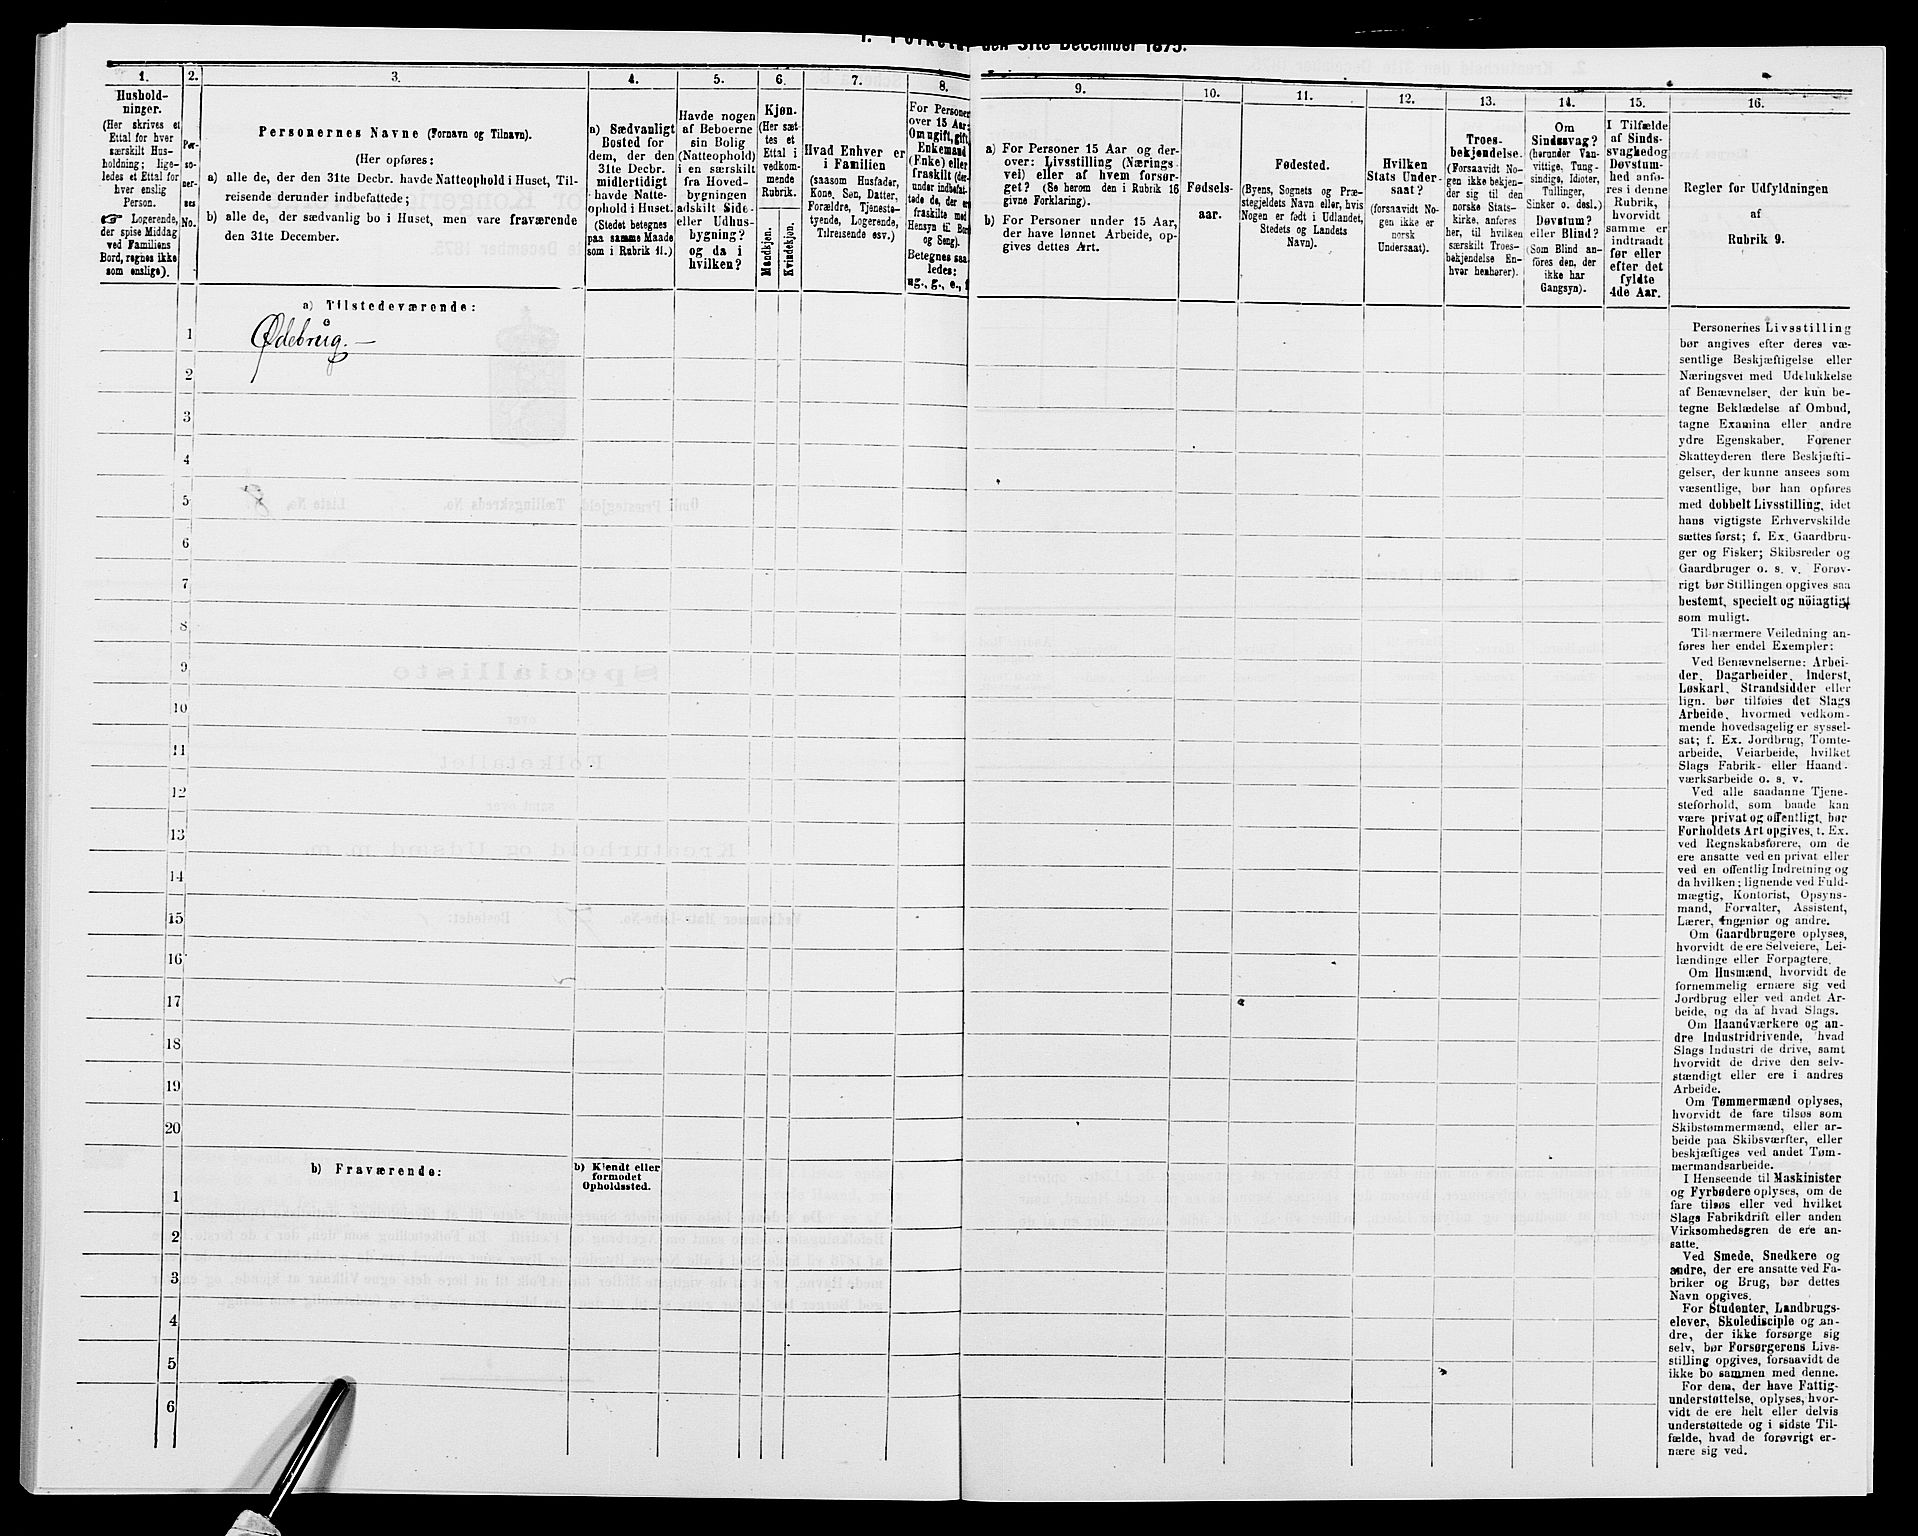 den 31te December 1875.
1.
Hushold-
ninger.
(Her skrives et
Ettal for hver
særskilt Hus-
holdning; lige-
ledes et Ettal for
hver enslig
Person.
☞ Logerende,
der spise Middag
ved Familiens
Bord, regnes ikke
som enslige).
2.
Per-
so-
ner-
nes
No.
3.
Personernes Navne (Fornavn og Tilnavn).
(Her opføres:
a) alle de, der den 31te Decbr. havde Natteophold i Huset, Til-
reisende derunder indbefattede;
b) alle de, der sædvanlig bo i Huset, men vare fraværende
den 31te December.
4.
a) Sædvanligt
Bosted for
dem, der den
31te Decbr.
midlertidigt
havde Natte-
ophold i Huset.
(Stedet betegnes
paa samme Maade
som i Rubrik 11.)
5.
Havde nogen
af Beboerne
sin Bolig
(Natteophold)
i en særskilt
fra Hoved-
bygningen
adskilt Side-
eller Udhus-
bygning?
og da i
hvilken?
6.
Kjøn.
(Her sæt
tes et
Ettal i
vedkom-
mende
Rubrik.
Mandkjøn.
Kvindekjøn.
7.
Hvad Enhver er
i Familien
(saasom Husfader,
Kone, Søn, Datter,
Forældre, Tjeneste-
tyende, Logerende,
Tilreisende osv.)
8.
For Personer
over 15 Aar:
Om ugift, gift,
Enkemand
(Enke) eller
fraskilt (der-
under indbefat-
tede de, der er
fraskilte med
Hensyn til Bord
og Seng).
Betegnes saa
ledes:
ug., g., e., f
9.
a) For Personer 15 Aar og der-
over: Livsstilling (Nærings
vei) eller af hvem forsør-
get? (Se herom den i Rubrik 16
givne Forklaring).
b) For Personer under 15 Aar,
der have lønnet Arbeide, op-
gives dettes Art.
10.
Fødsels-
aar.
11.
Fødested.
(Byens, Sognets og Præ-
stegjeldets Navn eller, hvis
Nogen er født i Udlandet,
Stedets og Landets
Navn).
12.
Hvilken
Stats Under-
saat?
(forsaavidt No-
gen ikke er
norsk
Undersaat).
13.
Troes-
bekjendelse.
(Forsaavidt No-
gen ikke bekjen-
der sig til den
norske Stats-
kirke, anføres
her, til hvilken
særskilt Troes-
bekjendelse En-
hver henhører).
14.
Om
Sindssvag?
(herunder Van-
vittige, Tung-
sindige, Idioter,
Tullinger,
Sinker o. desl.)
Døvstum?
eller Blind?
(Som Blind an-
føres den, der
ikke har
Gangsyn).
15.
I Tilfælde
af Sinds-
svaghed og
Døvstum-
hed anfø-
res i denne
Rubrik,
hvorvidt
samme er
indtraadt
før eller
efter det
fyldte
4de Aar.
16.
Regler for Udfyldningen
af
Rubrik 9.
a) Tilstedeværende:
1 Ødebrug. —
2
3
4
5
6
7
8
9
10
11
12
13
14
15
16
17
18
19
20
b) Fraværende:
b) Kjendt eller
formodet
Opholdssted.
1
2
3
4
5
6
Personernes Livsstilling
bør angives efter deres væ-
sentlige Beskjæftigelse eller
Næringsvei med Udelukkelse
af Benævnelser, der kun be-
tegne Beklædelse af Ombud,
tagne Examina eller andre
ydre Egenskaber. Forener
Skatteyderen flere Beskjæfti-
gelser, der kunne ansees som
væsentlige, bør han opføres
med dobbelt Livsstilling, idet
hans vigtigste Erhvervskilde
sættes først; f. Ex. Gaardbru-
ger og Fisker; Skibsreder og
Gaardbruger o. s. v. Forøv-
rigt bør Stillingen opgives saa
bestemt, specielt og nöiagtigt
som muligt.
Til nærmere Veiledning an-
føres her endel Exempler:
Ved Benævnelserne: Arbei-
der, Dagarbeider, Inderst,
Løskarl, Strandsidder eller
lign. bør tilføies det Slags
Arbeide, hvormed vedkom-
mende hovedsagelig er syssel-
sat; f. Ex. Jordbrug, Tomte-
arbeide, Veiarbeide, hvilket
Slags Fabrik- eller Haand-
værksarbeide o. s. v.
Ved alle saadanne Tjene-
steforhold, som baade kan
være privat og offentligt, bør
Forholdets Art opgives, t. Ex.
ved Regnskabsførere, om de
ere ansatte ved en privat eller
ved en offentlig Indretning og
da hvilken; lignende ved Fuld-
mægtig, Kontorist, Opsyns-
mand, Forvalter, Assistent,
Lærer, Ingeniør og andre.
Om Gaardbrugere oplyses,
hvorvidt de ere Selveiere, Lei-
lændinge eller Forpagtere.
Om Husmænd, hvorvidt de
fornemmelig ernære sig ved
Jordbrug eller ved andet Ar-
beide, og da af hvad Slags.
Om Haandværkere og an-
dre Industridrivende, hvad
Slags Industri de drive, samt
hvorvidt de drive den selv-
stændigt eller ere i andres
Arbeide.
Om Tømmermænd oplyses,
hvorvidt de fare tilsøs som
Skibstømmermænd, eller ar-
beide paa Skibsværfter, eller
beskjæftiges ved andet Tøm-
mermandsarbeide.
I Henseende til Maskinister
og Fyrbødere oplyses, om de
fare tilsøs eller ved hvilket
Slags Fabrikdrift eller anden
Virksomhedsgren de ere an-
satte.
Ved Smede, Snedkere og
andre, der ere ansatte ved Fa-
briker og Brug, bør dettes
Navn opgives.
For Studenter, Landbrugs-
elever, Skoledisciple og an-
dre, der ikke forsørge sig
selv, bør Forsørgerens Livs-
stilling opgives, forsaavidt de
ikke bo sammen med denne.
For dem, der have Fattig-
understøttelse, oplyses, hvor-
vidt de ere helt eller delvis
understøttede og i sidste Til-
fælde, hvad de forøvrigt er-
nære sig ved.